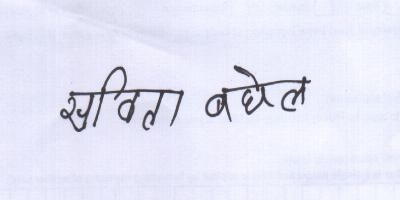 सुविता बघेल